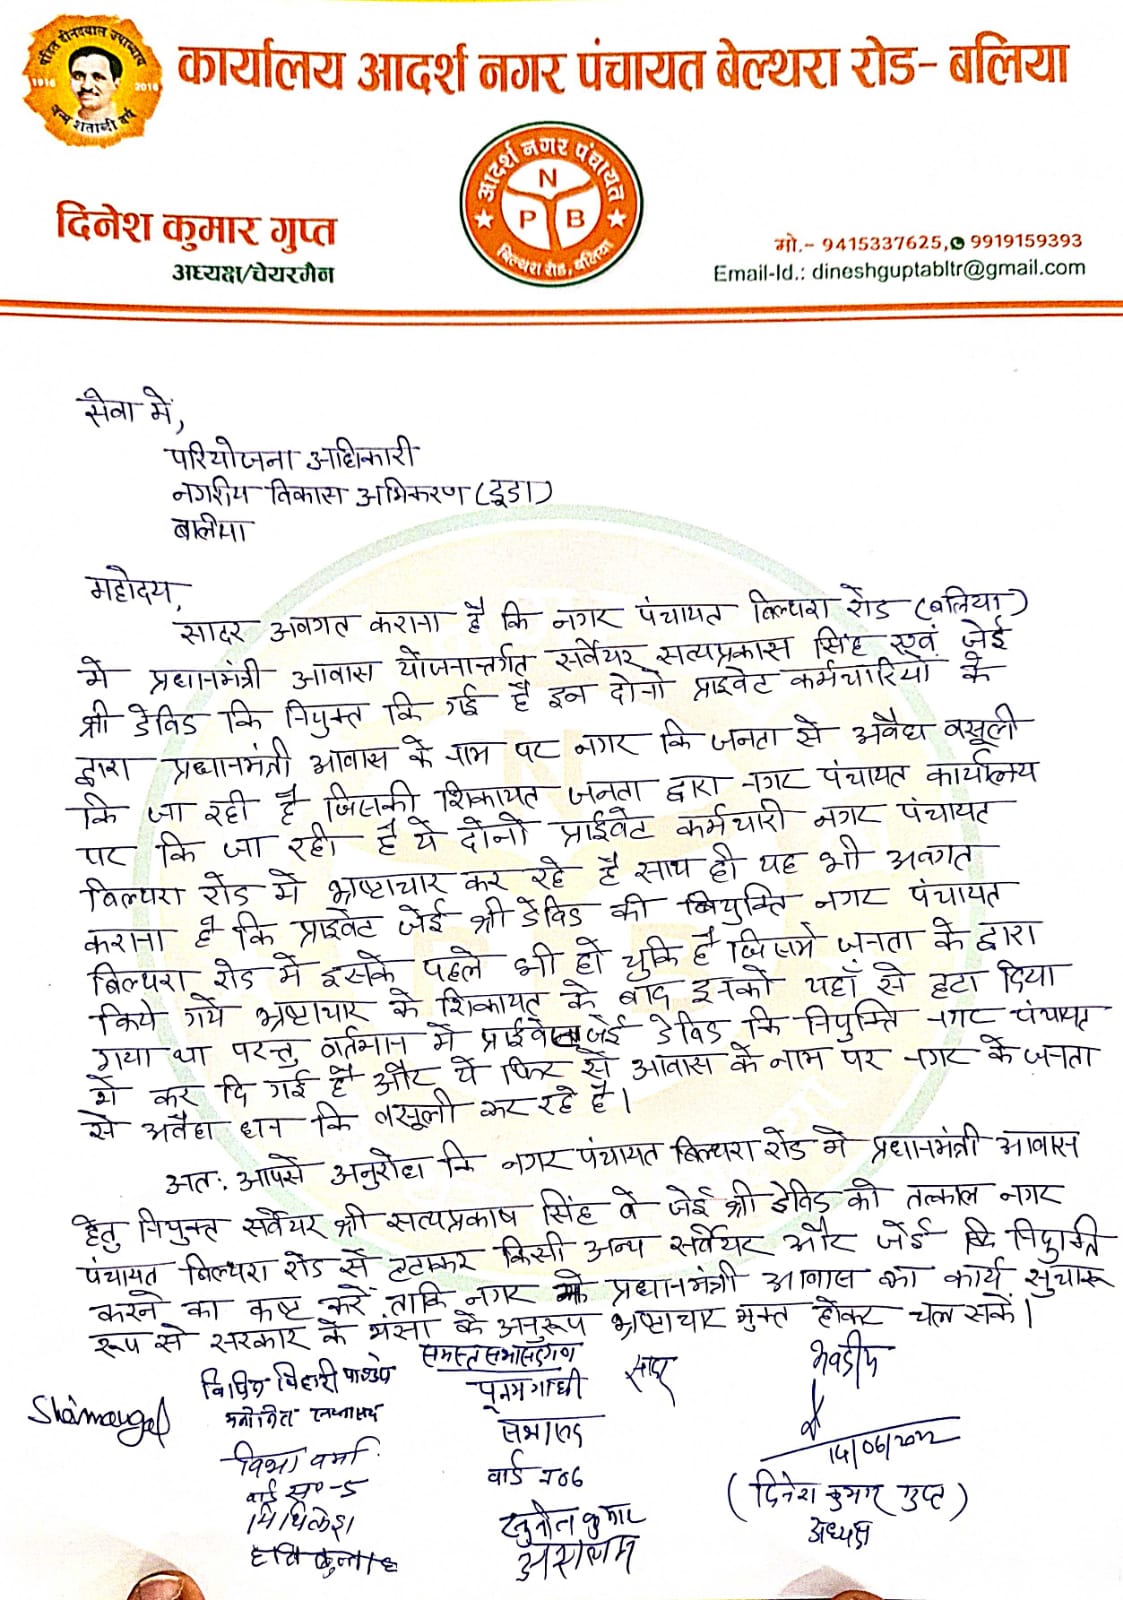 पंडित दीनदयाल उपाध्याय
1916 2016
जन्म शताब्दी वर्ष
कार्यालय आदर्श नगर पंचायत बेल्थरा रोड- बलिया
आदर्श नगर पंचायत
N
P B
बिल्थरा रोड, बलिया
दिनेश कुमार गुप्त
अध्यक्ष/चेयरमैन
मो.- 9415337625, 9919159393
Email-Id.: dineshguptabltr@gmail.com
सेवा में,
परियोजना अधिकारी
नगरीय विकास अभिकरण (डूडा)
बलिया
महोदय,
सादर अवगत कराना है कि नगर पंचायत बिल्थरा रोड (बलिया)
मे प्रधानमंत्री आवास योजनान्तर्गत सर्वेयर सत्यप्रकास सिंह एवं जेई
श्री डेविड कि नियुक्त कि गई है इन दोनो प्राइवेट कर्मचारियों के
द्वारा प्रधानमंत्री आवास के नाम पर नगर कि जनता से अवैध वसूली
कि जा रही है जिसकी शिकायत जनता द्वारा नगर पंचायत कार्यालय
पर कि जा रही है ये दोनो प्राईवेट कर्मचारी नगर पंचायत
बिल्थरा रोड में भ्रष्टाचार कर रहे है साथ ही यह भी अवगत
कराना है कि प्राइवेट जेई श्री डेविड की नियुक्ति नगर पंचायत
बिल्थरा रोड में इसके पहले भी हो चुकि है जिसमे जनता के द्वारा
किये गये भ्रष्टाचार के शिकायत के बाद इनको यहाँ से हटा दिया
गया था परन्तु वर्तमान में प्राईवेट जेई डेविड कि नियुक्ति नगर पंचायत
मे कर दि गई है और ये फिर से आवास के नाम पर नगर के जनता
से अवैध धन कि वसूली कर रहे है।
अतः आपसे अनुरोध कि नगर पंचायत बिल्थरा रोड में प्रधानमंत्री आवास
हेतु नियुक्त सर्वेयर श्री सत्यप्रकाष सिंह वे जेई श्री डेविड को तत्काल नगर
पंचायत बिल्थरा रोड से हटाकर किसी अन्य सर्वेयर और जेई कि नियुक्ति
करने का कष्ट करें ताकि नगर मे प्रधानमंत्री आवास का कार्य सुचारू
रूप से सरकार के मंसा के अनुरूप भ्रष्टाचार मुक्त होकर चल सकें।
समस्त सभासदगण
सादर
भवदीय
विपिन बिहारी पाण्डेय
पूनम गांधी
सभासद
वार्ड न06
विभा वर्मा
वार्ड स०-5
मिथिलेश
सुनील कुमार
14/06/2022
(दिनेश कुमार गुप्त)
अध्यक्ष